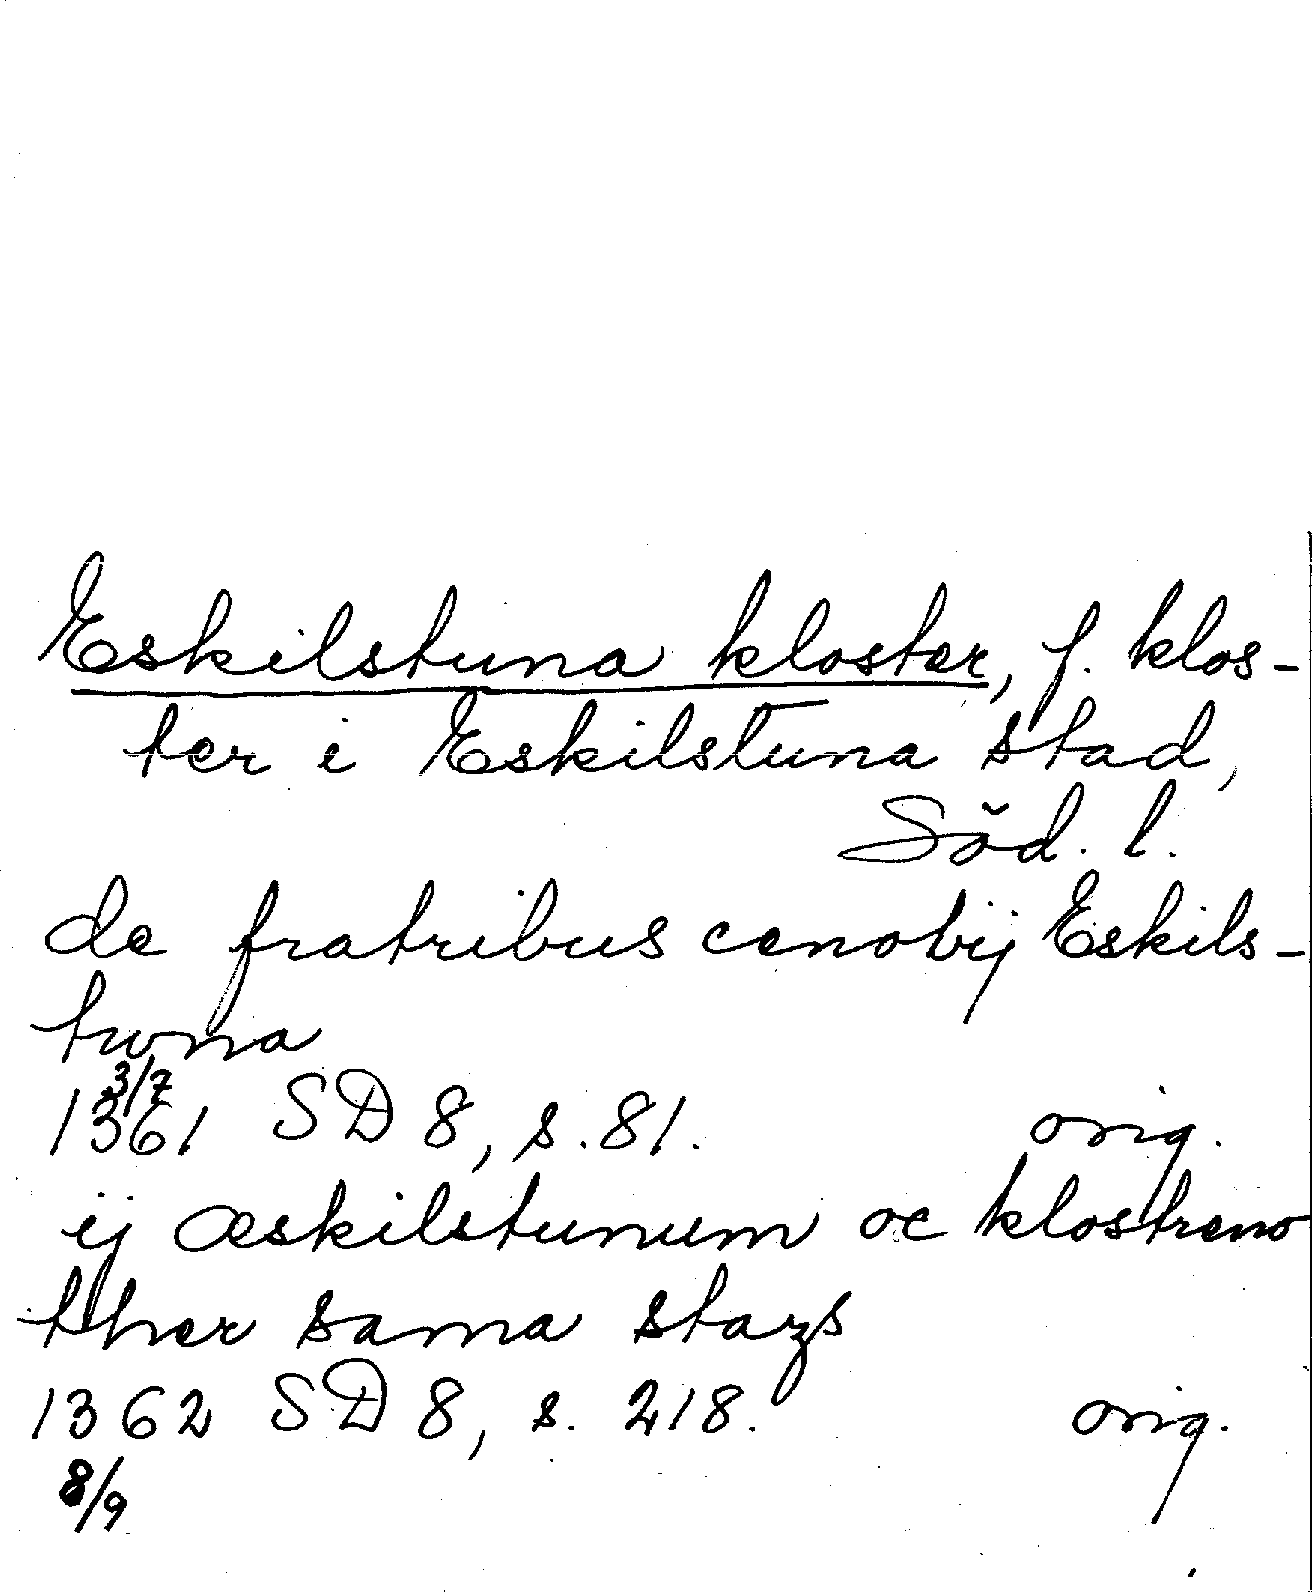 Eskilstuna kloster, f. klos-
ter i Eskilstuna stad,
Söd. l.
de fratribus cenobij Eskils-
twna
3/7
1361 SD 8, s. 81. orig.
ij æskilstunum oc klostreno
ther sama stazs
1362 SD 8, s. 218. orig.
8/9